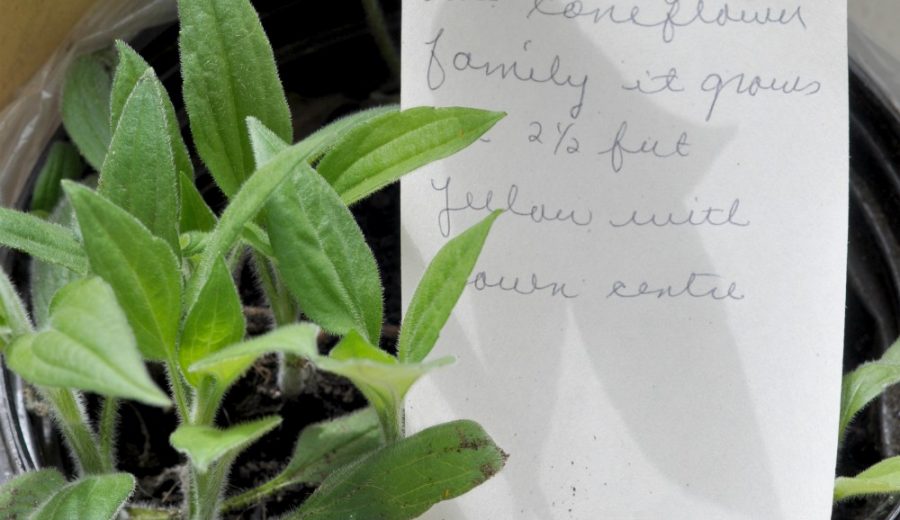 coneflower
family it grows
2½ feet
Yellow with
own centre